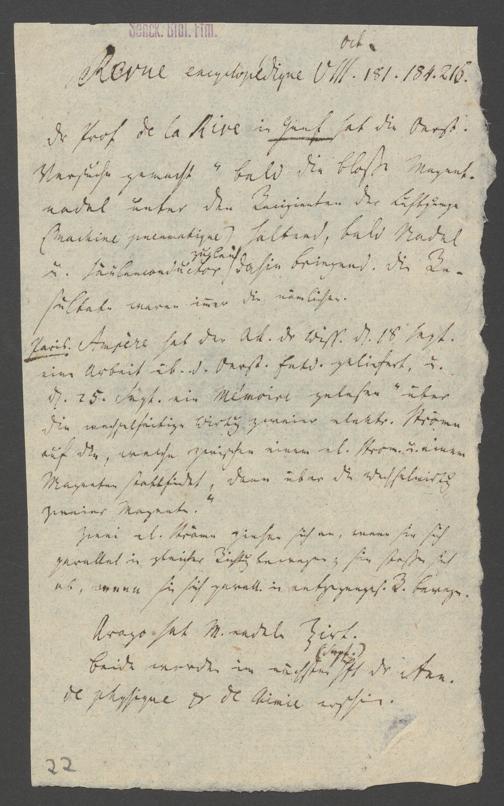 Senck. Bibl. Ffm.
Oct.
Revue encyclopédique VIII. 181. 184. 216.
Dr Prof de la Rive in Genf hat die Oerst.
Versuche gemacht " bald die bloße Magnet-
nadel unter den Recipienten der Luftpumpe
(machine pneumatique) haltend, bald Nadel
zugleich
u. Säulenconductor dahin bringend. Die Re-
sultate waren immer die nämlichen.
Paris. Ampère hat der Ak. der Wiss. d. 18 Sept.
eine Arbeit üb. d. Oerst. Entd. geliefert, u.
d. 25. Sept. ein Mémoire gelesen " über
die wechselseitige Wirkg zweier elektr. Ströme
auf die, welche zwischen einem el. Strom u. einem
Magneten stattfindet, dann über die Wechselwirkg
zweier Magnete."
Zwei el. Ströme ziehen sich an, wenn sie sich
parallel in gleicher Richtg bewegen; sie stoßen sich
ab, wenn sie sich parall. in entgegenges. R. bewegn.
Arago hat M.nadeln
(Sept.)
beide werden im nächsten Hft der Ann.
de physique & de Chimie erschein.
22